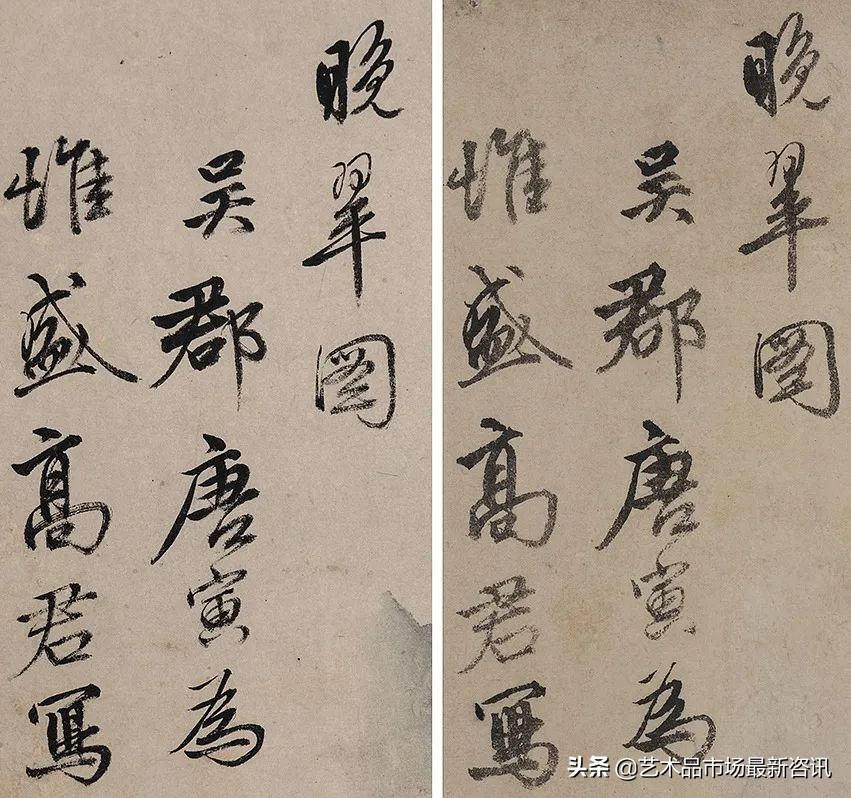 晚翠圖
吳郡唐寅為
惟盛高君寫
晚翠圖
吳郡唐寅為
惟盛高君寫
头条 @艺术品市场最新咨讯